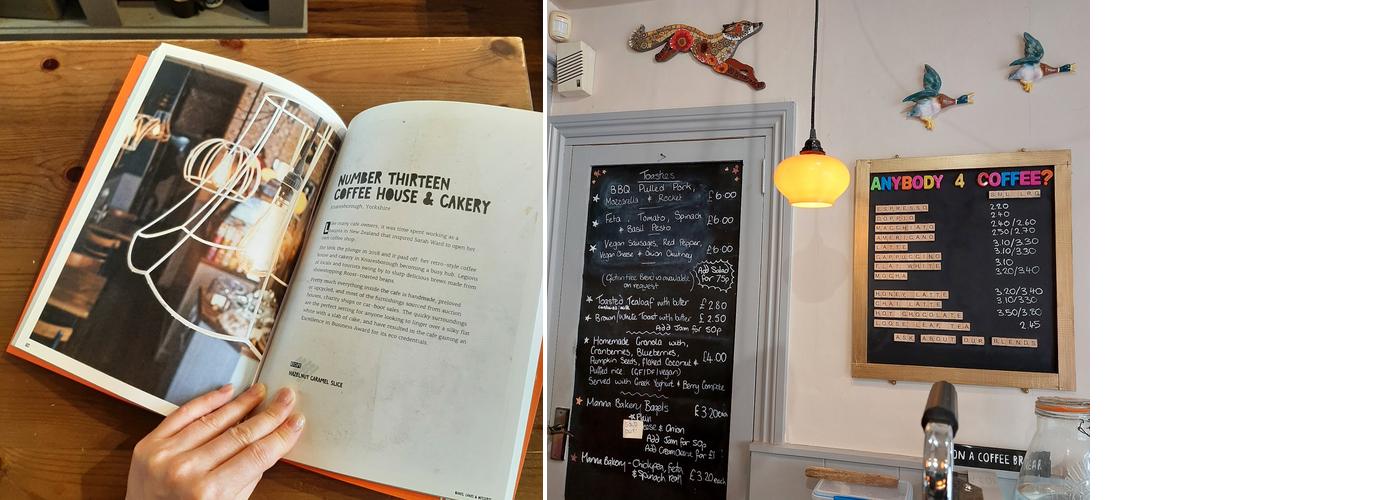 NUMBER THIRTEEN
COFFEE HOUSE & CAKERY
Knaresborough, Yorkshire
Like many cafe owners, it was time spent working as a
barista in New Zealand that inspired Sarah Ward to open her
own coffee shop.
She took the plunge in 2018 and it paid off: her retro-style coffee
house and cakery in Knaresborough becoming a busy hub. Legions
of locals and tourists swing by to slurp delicious brews made from
showstopping Roost-roasted beans.
Pretty much everything inside the cafe is handmade, preloved
or upcycled, and most of the furnishings sourced from auction
houses, charity shops or car-boot sales. The quirky surroundings
are the perfect setting for anyone looking to linger over a silky flat
white with a slab of cake, and have resulted in the cafe gaining an
Excellence in Business Award for its eco credentials.
HAZELNUT CARAMEL SLICE
Toasties
BBQ Pulled Pork,
Mozzarella & Rocket £6.00
Feta, Tomato, Spinach £6.00
& Basil Pesto
Vegan Sausages, Red Pepper, £6.00
Vegan Cheese & Onion Chutney
(Gluten free Bread is available
on request)
Add Salad
for 75p
Toasted Tealoaf with butter £2.80
Brown/White Toast with butter £2.50
Add Jam for 50p
Homemade Granola with,
Cranberries, Blueberries,
Pumpkin Seeds, Flaked Coconut & £4.00
Puffed rice. (GF/DF/Vegan)
Served with Greek Yoghurt & Berry Compote
Manna Bakery Bagels £3.20 each
Plain
& Onion
Add Jam for 50p
Add Cream Cheese for £1
Manna Bakery - Chickpea, Feta
& Spinach roll £3.20 each
ANYBODY 4 COFFEE?
SML LRG
ESPRESSO 2.20
DOPPIO 2.40
MACCHIATO 2.40/2.60
AMERICANO 2.50/2.70
LATTE 3.10/3.30
CAPPUCCINO 3.10/3.30
FLAT WHITE 3.10
MOCHA 3.20/3.40
HONEY LATTE 3.20/3.40
CHAI LATTE 3.10/3.30
HOT CHOCOLATE 3.50/3.80
LOOSE LEAF TEA 2.45
ASK ABOUT OUR BLENDS
ON A COFFEE BR